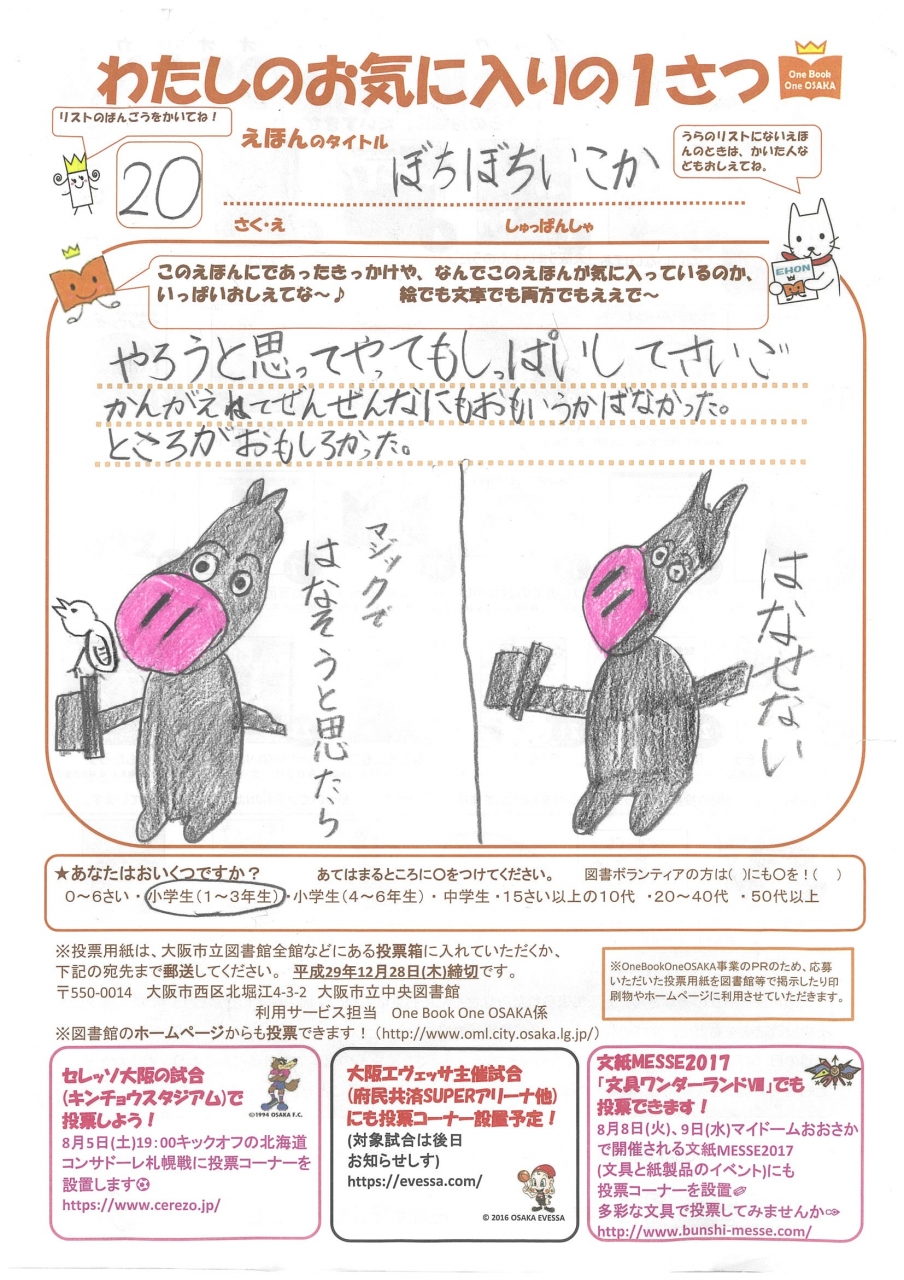 わたしのお気に入りの1さつ
One Book
One OSAKA
リストのばんごうをかいてね！
20
えほんのタイトル
ぼちぼちいこか
うらのリストにないえほ
んのときは、かいた人な
どもおしえてね。
さく・え
しゅっぱんしゃ
EHON
このえほんにであったきっかけや、なんでこのえほんが気に入っているのか、
いっぱいおしえてな～♪ 絵でも文章でも両方でもええで～
やろうと思ってやってもしっぱいしてさいご
かんがえてぜんぜんなにもおもいうかばなかった。
ところがおもしろかった。
マジックで
はなそうと思たら
はなせない
★あなたはおいくつですか？ あてはまるところに〇をつけてください。 図書ボランティアの方は( )にも〇を！( )
0～6さい・小学生(1～3年生)・小学生(4～6年生)・中学生・15さい以上の10代・20～40代・50代以上
※投票用紙は、大阪市立図書館全館などにある投票箱に入れていただくか、
下記の宛先まで郵送してください。 平成29年12月28日(木)締切です。
〒550-0014 大阪市西区北堀江4-3-2 大阪市立中央図書館
利用サービス担当 One Book One OSAKA係
※図書館のホームページからも投票できます！(http://www.oml.city.osaka.lg.jp/)
※OneBookOneOSAKA事業のPRのため、応募
いただいた投票用紙を図書館等で掲示したり印
刷物やホームページに利用させていただきます。
セレッソ大阪の試合
(キンチョウスタジアム)で
投票しよう！
©1994 OSAKA F.C.
8月5日(土)19：00キックオフの北海道
コンサドーレ札幌戦に投票コーナーを
設置します⚽
https://www.cerezo.jp/
大阪エヴェッサ主催試合
(府民共済SUPERアリーナ他)
にも投票コーナー設置予定！
(対象試合は後日
お知らせしす)
https://evessa.com/
© 2016 OSAKA EVESSA
文紙MESSE2017
「文具ワンダーランドⅧ」でも
投票できます！
8月8日(火)、9日(水)マイドームおおさか
で開催される文紙MESSE2017
(文具と紙製品のイベント)にも
投票コーナーを設置✐
多彩な文具で投票してみませんか✑
http://www.bunshi-messe.com/